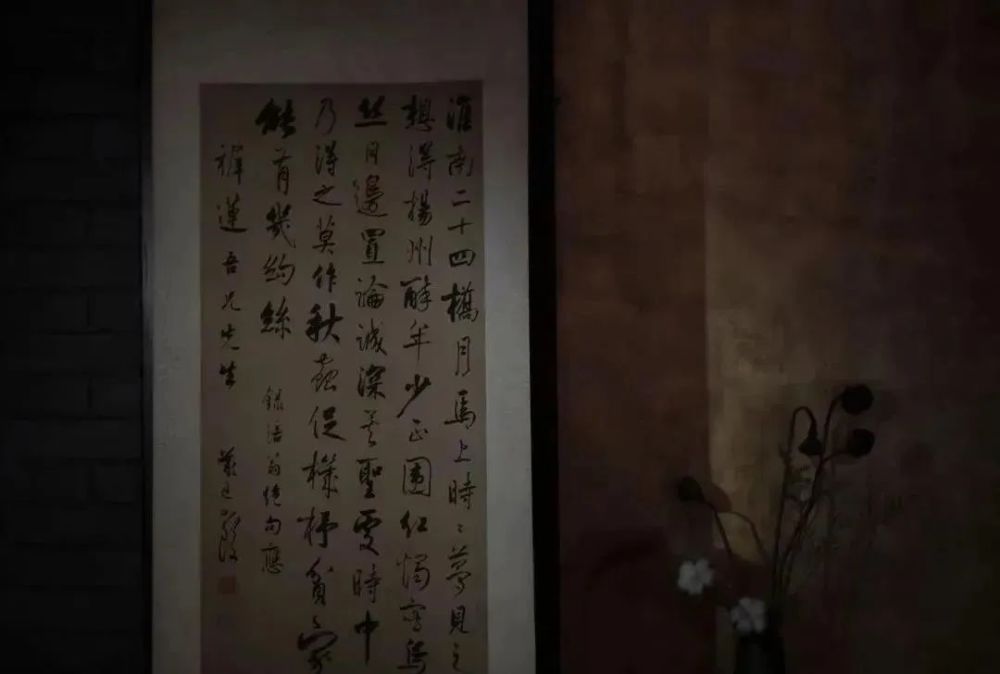 淮南二十四橋月馬上時〻夢見之
想得揚州醉年少正圍紅燭寫烏
丝日邊置論誠深矣聖處時中
乃得之莫作秋蟲促機杼貧家
能有幾絇絲
錄涪翁絕句應
蓮吾兄先生